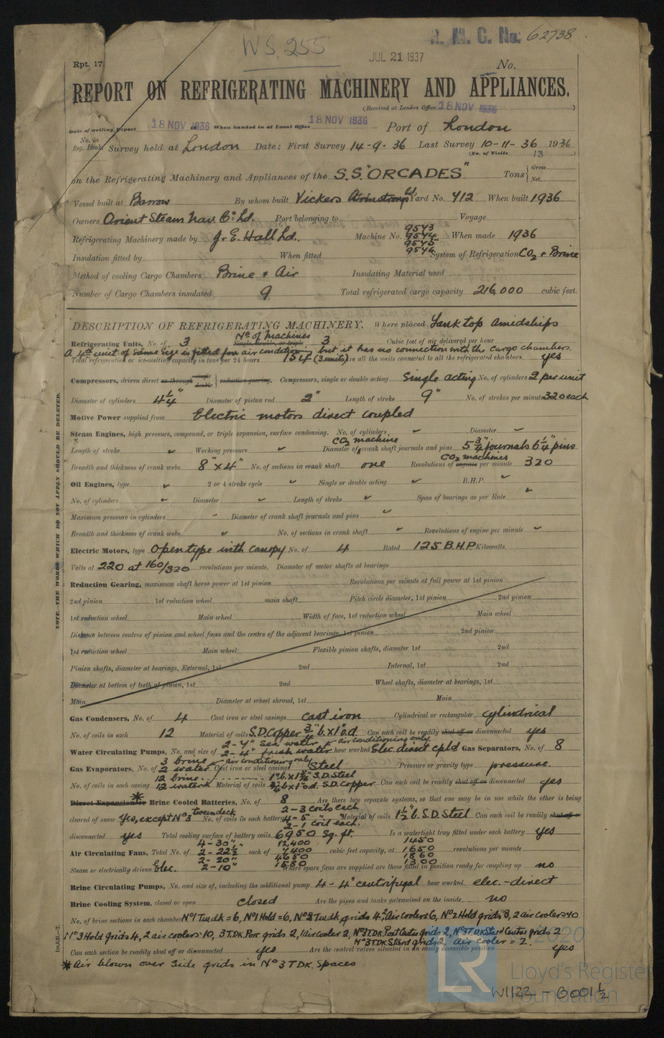 WS. 255
JUL 21 1937
R. M. C. No. 62738.
Rpt. 17.
No.
REPORT ON REFRIGERATING MACHINERY AND APPLIANCES.
(Received at London Office 18 NOV 1936 )
Date of writing Report 18 NOV 1936 When handed in at Local Office 18 NOV 1936 Port of London
No. in Reg. Book. Survey held at London Date: First Survey 14-9-36 Last Survey 10-11-36 1936
(No. of Visits 13 )
on the Refrigerating Machinery and Appliances of the S.S. "ORCADES" Tons { Gross Net
Vessel built at Barrow By whom built Vickers Armstrongs Ld Yard No. 412 When built 1936
Owners Orient Steam Nav. Co. Ld. Port belonging to Voyage
Refrigerating Machinery made by J. & E. Hall Ld. Machine No. 9543 9544 9545 9546 When made 1936
Insulation fitted by When fitted System of Refrigeration CO2 & Brine
Method of cooling Cargo Chambers Brine & Air Insulating Material used
Number of Cargo Chambers insulated 9 Total refrigerated cargo capacity 216,000 cubic feet.
DESCRIPTION OF REFRIGERATING MACHINERY. Where placed Tank top Amidships
Refrigerating Units, No. of 3 No of machines 3 Cubic feet of air delivered per hour
A 4th unit of same size is fitted for air condition but it has no connection with the cargo chambers.
Total refrigeration or ice-making capacity in tons per 24 hours 154 (3 units) is all the units connected to all the refrigerated chambers yes
Compressors, driven direct or through reduction gearing. Compressors, single or double acting Single acting No. of cylinders 2 per unit
Diameter of cylinders 4¼" Diameter of piston rod 2" Length of stroke 9" No. of strokes per minute 320 each
Motive Power supplied from Electric motors direct coupled
Steam Engines, high pressure, compound, or triple expansion, surface condensing. No. of cylinders " Diameter "
Length of stroke " Working pressure " Diameter of CO2 machine crank shaft journals and pins 5¾" journals 6¼" pins
Breadth and thickness of crank webs 8" x 4" No. of sections in crank shaft one Revolutions of CO2 machines engines per minute 320
Oil Engines, type " 2 or 4 stroke cycle " Single or double acting " B.H.P. "
No. of cylinders " Diameter " Length of stroke " Span of bearings as per Rule "
Maximum pressure in cylinders " Diameter of crank shaft journals and pins "
Breadth and thickness of crank webs " No. of sections in crank shaft " Revolutions of engine per minute "
Electric Motors, type Open type with canopy No. of 4 Rated 125 B.H.P. Kilowatts
Volts at 220 at 160/320 revolutions per minute. Diameter of motor shafts at bearings
Reduction Gearing, maximum shaft horse power at 1st pinion Revolutions per minute at full power at 1st pinion
2nd pinion 1st reduction wheel main shaft Pitch circle diameter, 1st pinion 2nd pinion
1st reduction wheel Main wheel Width of face, 1st reduction wheel Main wheel
Distance between centres of pinion and wheel faces and the centre of the adjacent bearings, 1st pinion 2nd pinion
1st reduction wheel Main wheel Flexible pinion shafts, diameter 1st 2nd
Pinion shafts, diameter at bearings, External, 1st 2nd Internal, 1st 2nd
Diameter at bottom of teeth of pinion, 1st 2nd Wheel shafts, diameter at bearings, 1st
Main Diameter at wheel shroud, 1st Main
Gas Condensers, No. of 4 Cast iron or steel casings cast iron Cylindrical or rectangular cylindrical
No. of coils in each 12 Material of coils S.D. Copper ¾" b x 1" o.d. Can each coil be readily shut off or disconnected yes
Water Circulating Pumps, No. and size of 2-4" sea water & 2-4" fresh water air conditioning only how worked Elec. direct cpld Gas Separators, No. of 8
Gas Evaporators, No. of 3 brine 2 water air conditioning only Cast iron or steel casings Steel Pressure or gravity type pressure.
No. of coils in each casing 12 brine 12 water Material of coils S.D. Steel S.D. Copper Can each coil be readily shut off or disconnected yes
* Direct Expansion or Brine Cooled Batteries, No. of 8 Are there two separate systems, so that one may be in use while the other is being
cleared of snow Yes, except No 3 Tweendeck No. of coils in each battery 2-3 coils each 4-5 2-1 coil each. Material of coils S.D. Steel Can each coil be readily shut off or
disconnected yes Total cooling surface of battery coils 6950 Sq. ft. Is a watertight tray fitted under each battery yes
Air Circulating Fans, Total No. of 4-30" 2-22½ 2-20" 2-10" each of 12,400 7400 4650 1580 cubic feet capacity, at 1450 1650 1860 1300 revolutions per minute
Steam or electrically driven Elec. Where spare fans are supplied are these fitted in position ready for coupling up no
Brine Circulating Pumps, No. and size of, including the additional pump 4-4" centrifugal how worked elec-direct
Brine Cooling System, closed or open closed Are the pipes and tanks galvanised on the inside. no
No. of brine sections in each chamber No 1 Tindk = 6, No 1 Hold = 6, No 2 Tindk grids 4, Air coolers 6, No 2 Hold grids 8, 2 air coolers = 10
No 3 Hold grids 4, 2 air coolers = 10, 3 T.Dk. Por. grids 2, 1 air cooler 2, No 3 T.Dk Port Centre grids 2, No 3 T.Dk Star Centre grids 2
No 3 T.Dk Star grids 2, Air cooler = 2.
Can each section be readily shut off or disconnected yes Are the control valves situated in an easily accessible position yes
* Air blown over side grids in No 3 T.DK. Spaces
NOTE.—THE WORDS WHICH DO NOT APPLY SHOULD BE DELETED.
© 2020
LR
Lloyd's Register
Foundation
W1122 - 0001½